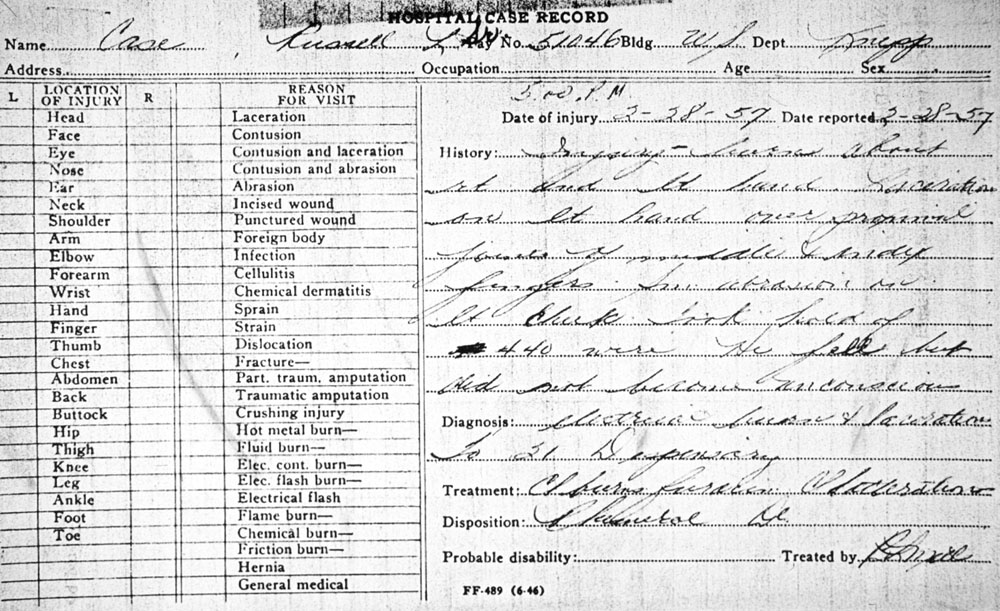 HOSPITAL CASE RECORD
Name Case Russell L Pay No. 51046 Bldg. W.S. Dept.
Address Occupation Age Sex
L LOCATION OF INJURY R REASON FOR VISIT
Head Laceration
Face Contusion
Eye Contusion and laceration
Nose Contusion and abrasion
Ear Abrasion
Neck Incised wound
Shoulder Punctured wound
Arm Foreign body
Elbow Infection
Forearm Cellulitis
Wrist Chemical dermatitis
Hand Sprain
Finger Strain
Thumb Dislocation
Chest Fracture—
Abdomen Part. traum. amputation
Back Traumatic amputation
Buttock Crushing injury
Hip Hot metal burn—
Thigh Fluid burn—
Knee Elec. cont. burn—
Leg Elec. flash burn—
Ankle Electrical flash
Foot Flame burn—
Toe Chemical burn—
Friction burn—
Hernia
General medical
5:00 P.M.
Date of injury 2-28-57 Date reported 2-28-57
History: burns about
rt and lt hand laceration
on lt hand over proximal
joints of middle & index
fingers Sm abrasion on
lt cheek Took hold of
440 wire He fell but
did not become unconscious
Diagnosis: Electrical burn & laceration
To 31 Dispensary
Treatment: burns furacin laceration
Disposition:
Probable disability: Treated by
FF-489 (6-46)